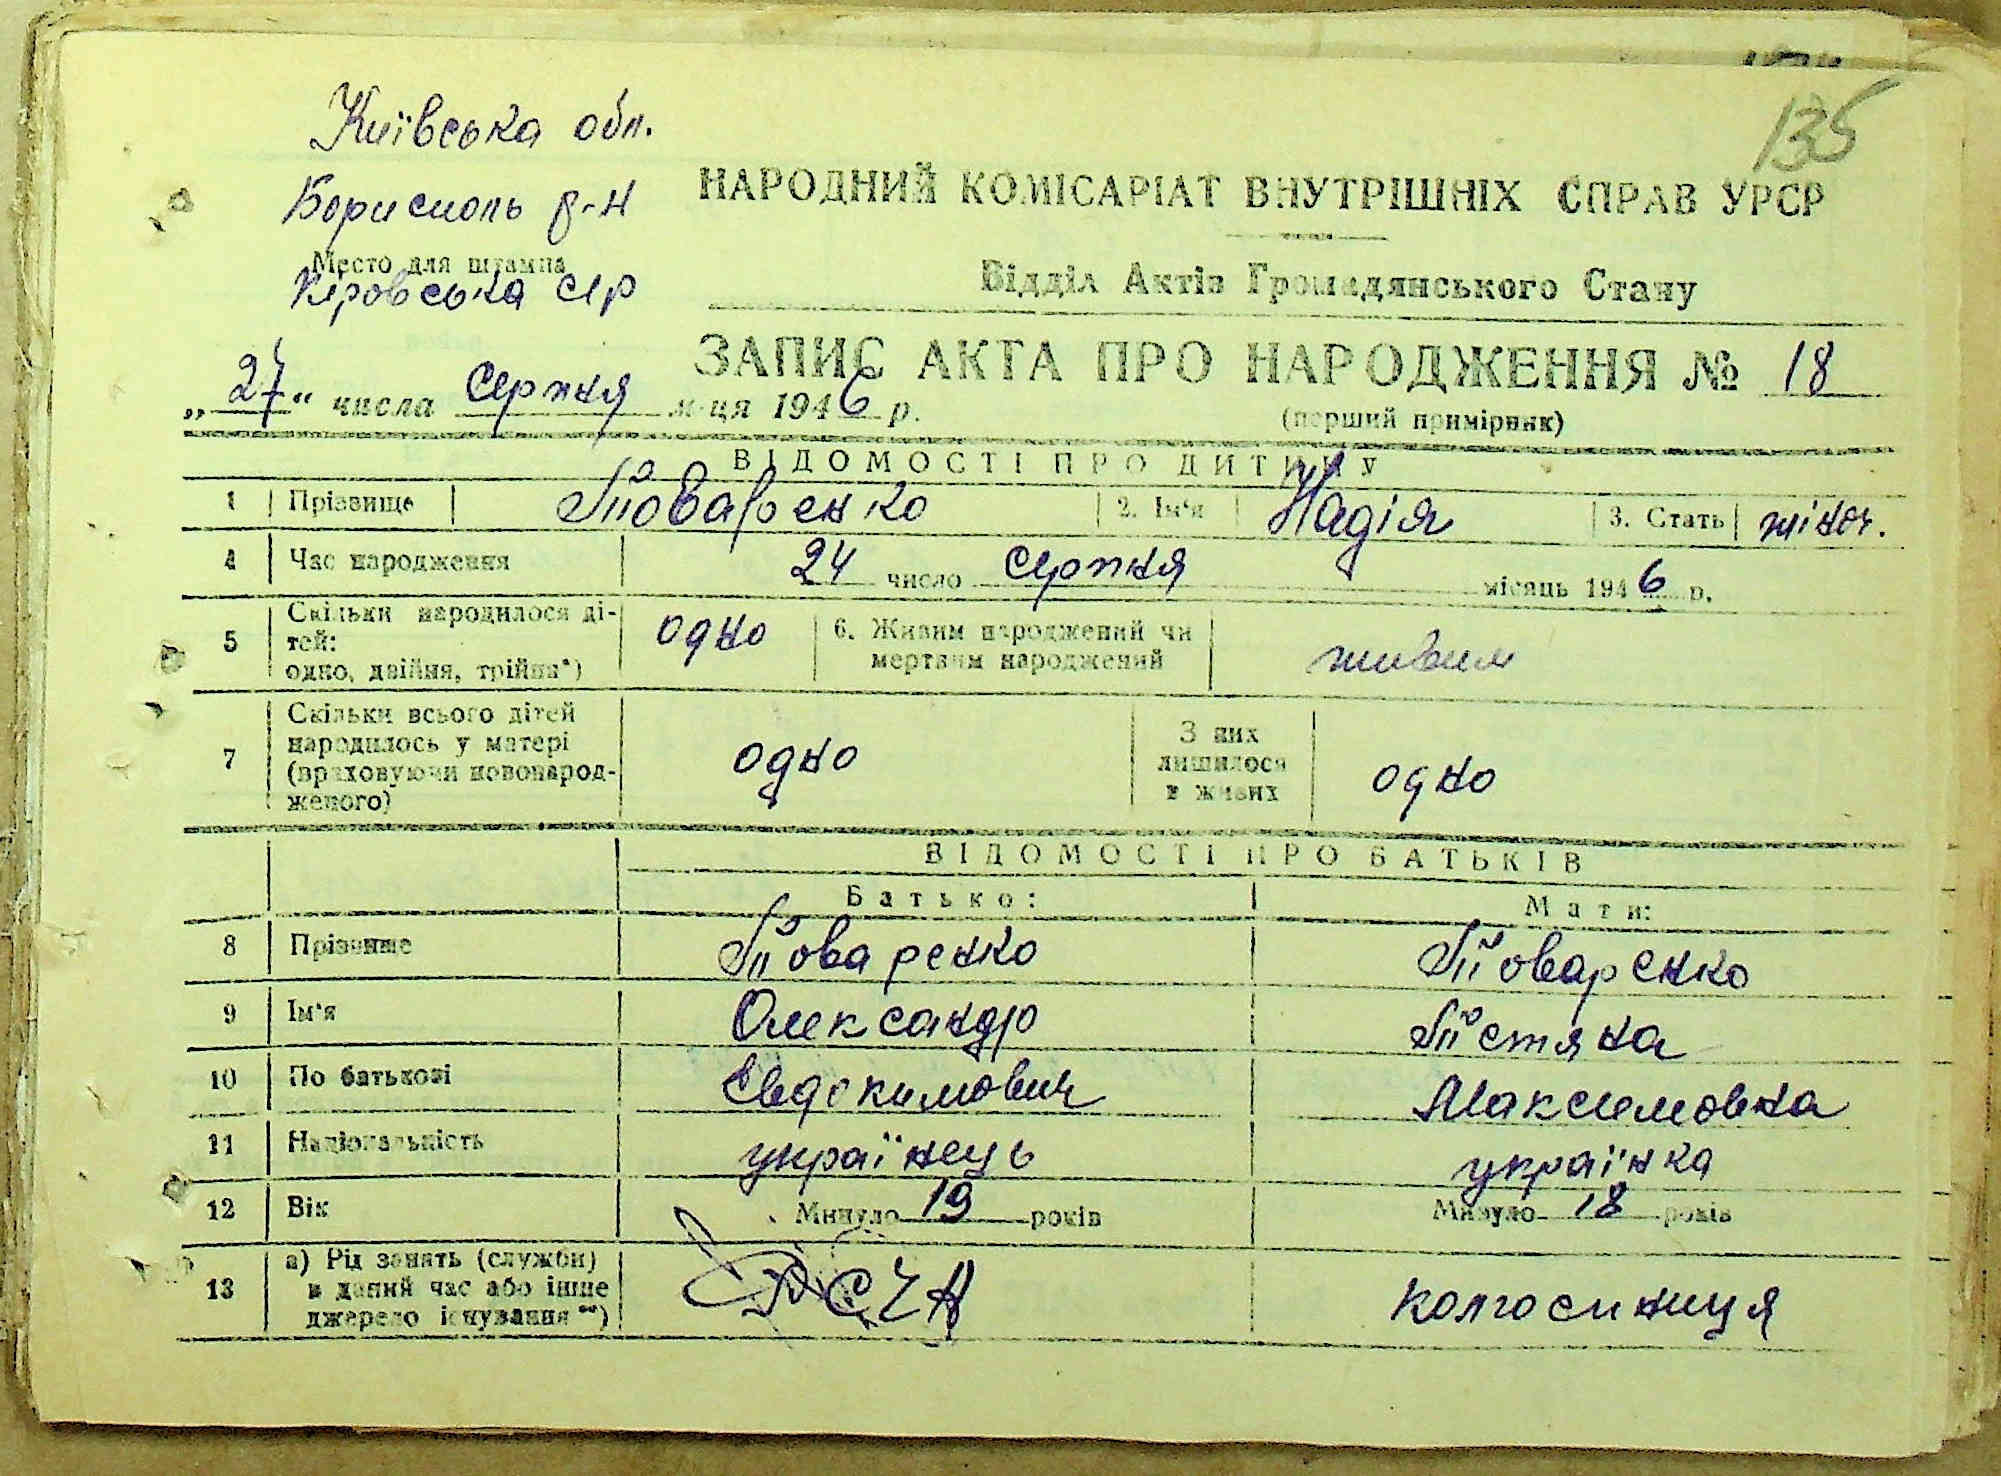 135
Київська обл.
Борисполь р-н
Место для штампа
Кіровська с/р
НАРОДНИЙ КОМІСАРІАТ ВНУТРІШНІХ СПРАВ УРСР
Відділ Актів Громадянського Стану
ЗАПИС АКТА ПРО НАРОДЖЕННЯ № 18
„27“ числа серпня м-ця 1946 р.
(перший примірник)
ВІДОМОСТІ ПРО ДИТИНУ
1 Прізвище Товаренко 2. Ім'я Надія 3. Стать жіноч.
4 Час народження 24 число серпня місяць 1946 р.
5 Скільки народилося ді-
тей:
одно, двійня, трійня*) одно 6. Живим народжений чи
мертвим народжений живим
7 Скільки всього дітей
народилось у матері
(враховуючи новонарод-
женого) одно З них
лишилося
в живих одно
ВІДОМОСТІ ПРО БАТЬКІВ
Батько: Мати:
8 Прізвище Товаренко Товаренко
9 Ім'я Олександр Тетяна
10 По батькові Євдокимович Максимовна
11 Національність українець українка
12 Вік Минуло 19 років Минуло 18 років
13 а) Рід занять (служби)
в даний час або інше
джерело існування **) колгоспниця